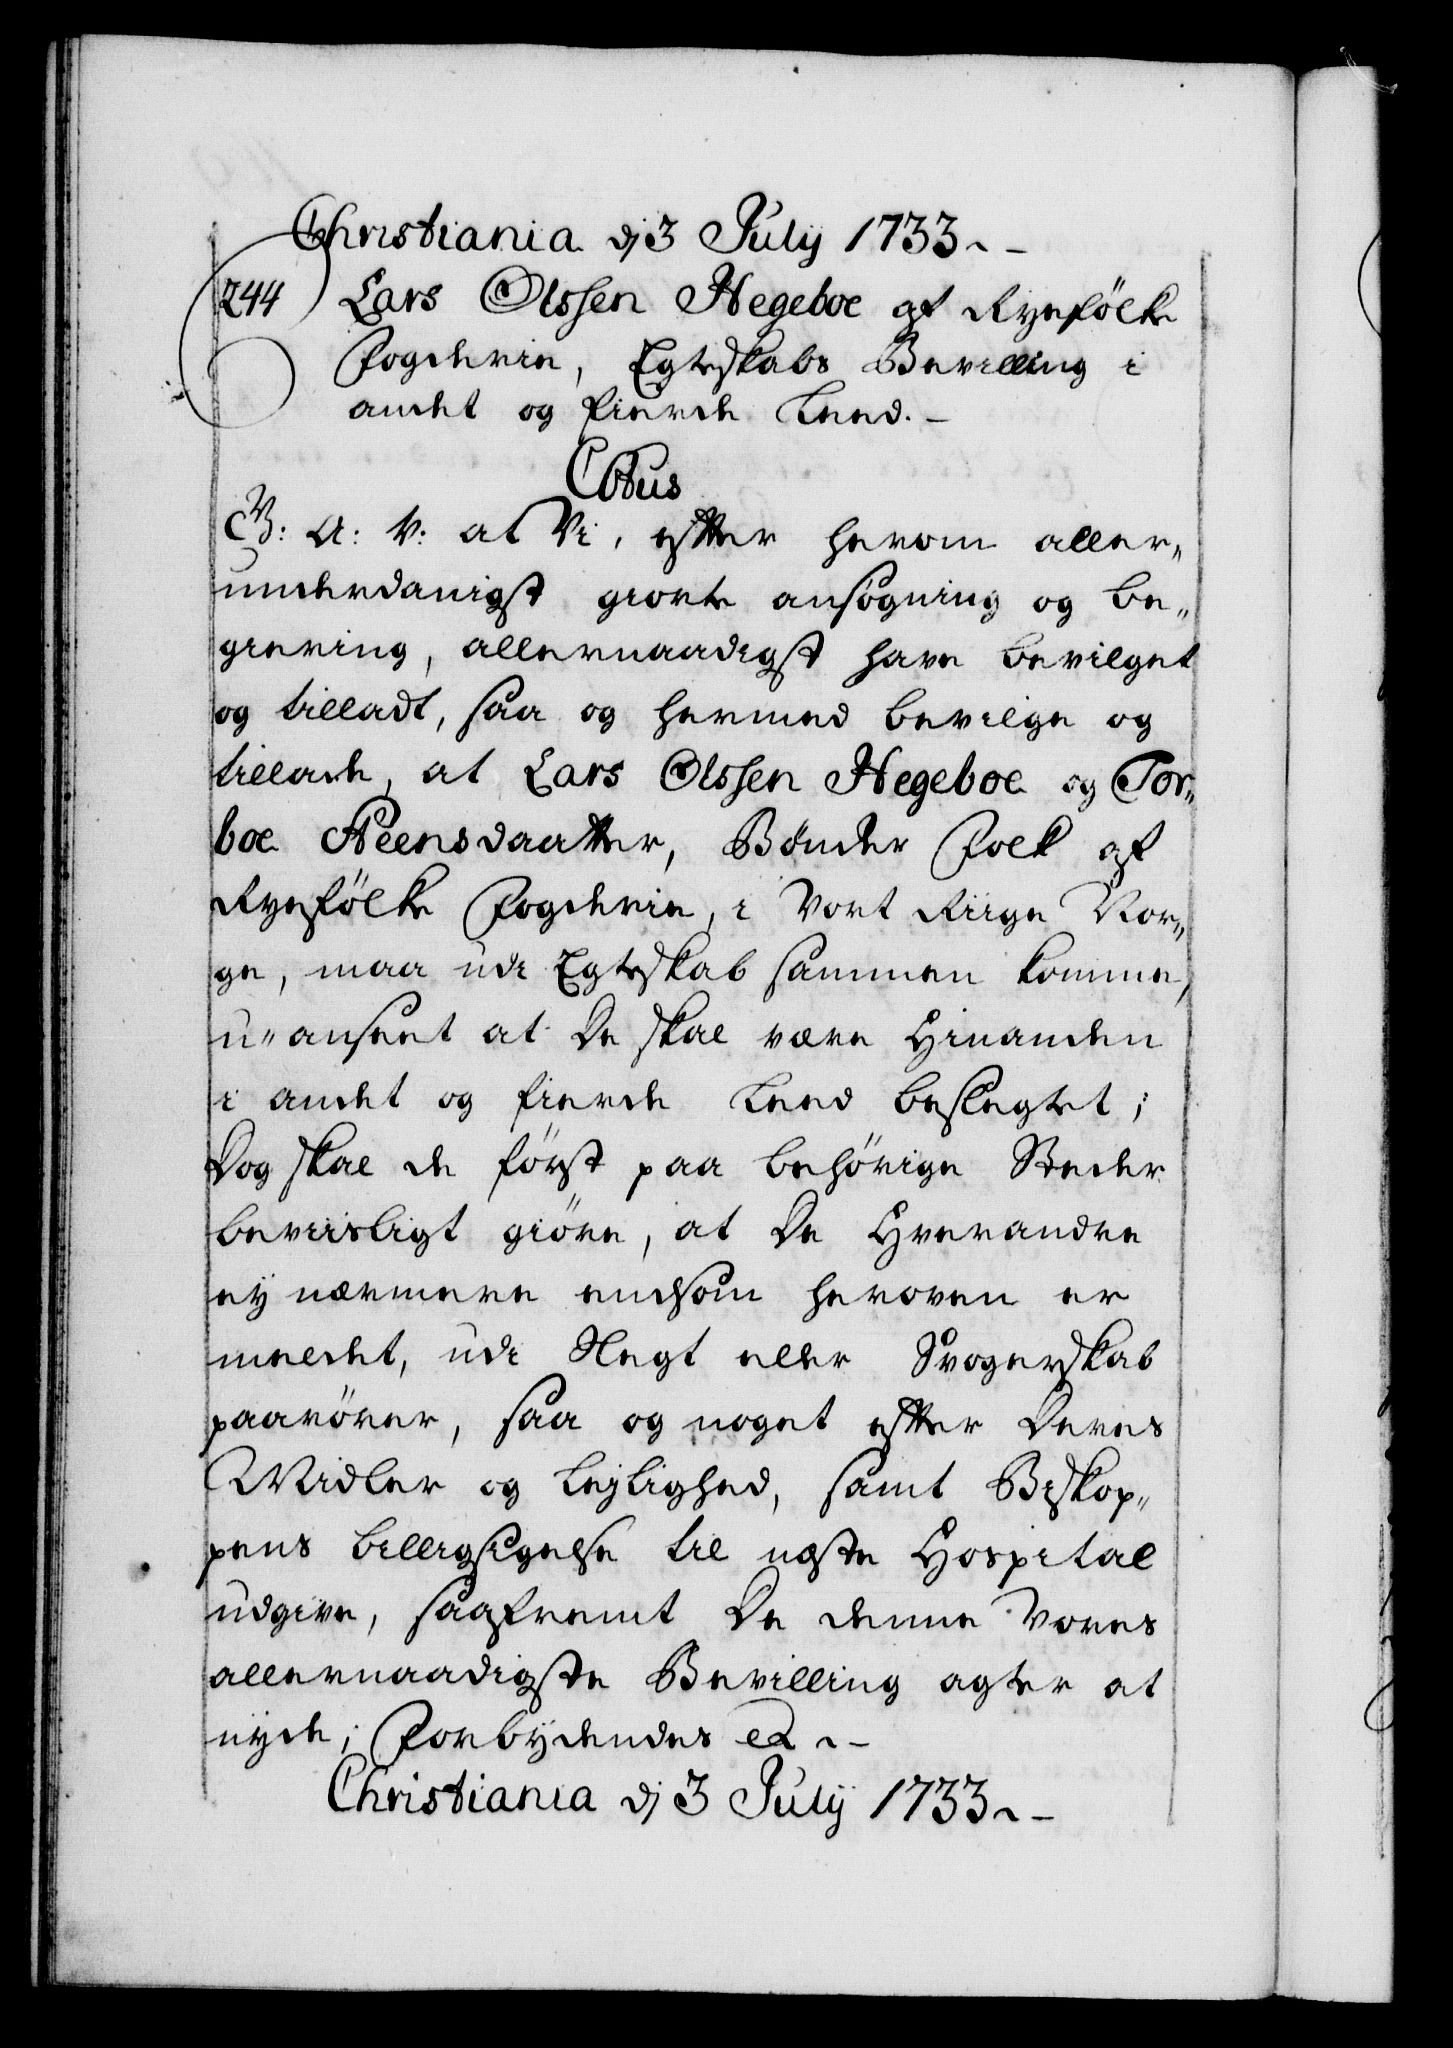 Christiania dj 3 July 1733.
244 Lars Olssen Hegeboe af Ryefölke
Fogderie, Egteskabs Bevilling i
andet og fierde Leed.
C6tus
G: A: V: at Vi, efter herom aller„
underdanigst giorte ansøgning og be„
giering, allernaadigst have bevilget
og tilladt, saa og hermed bevilge og
tillade, at Lars Olssen Hegeboe og Tor„
boe Steensdaatter, Bønder Folk af
Ryefölke Fogderie, i Vort Riige Nor„
ge, maa udi Egteskab sammen komme,
u„anseet at De skal være Hinanden
i andet og fierde Leed beslegtet;
Dog skal de först paa behörige Steder
beviisligt giöre, at De Hverandre
ey nærmere endsom heroven er
meldet, udi Slegt eller Svogerskab
paarörer, saa og noget efter Deres
Midler og lejlighed, samt Biskop„
pens billigsigelse til næste Hospital
udgive, saafremt De denne Vores
allernaadigste Bevilling agter at
nyde; Forbydendes etc.
Christiania dj 3 July 1733.